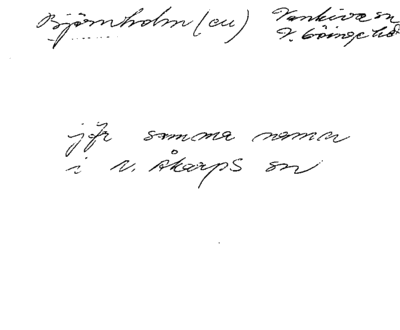 Björnholm (cu) Vankiva sn
V. Göinge hd
jfr samma namn
i N. Åkarps sn